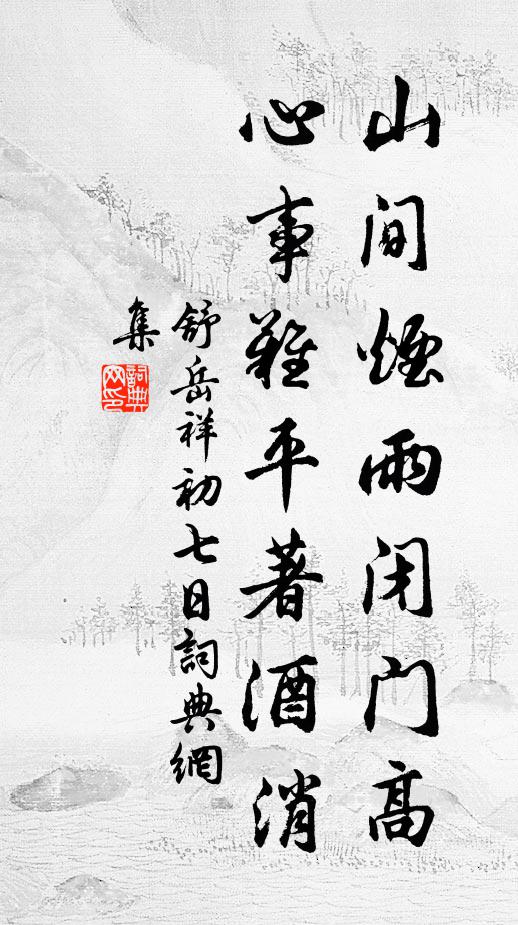 山間煙雨闭门高
心事難平著酒消
舒岳祥初七日詞典網
集
詞典网印